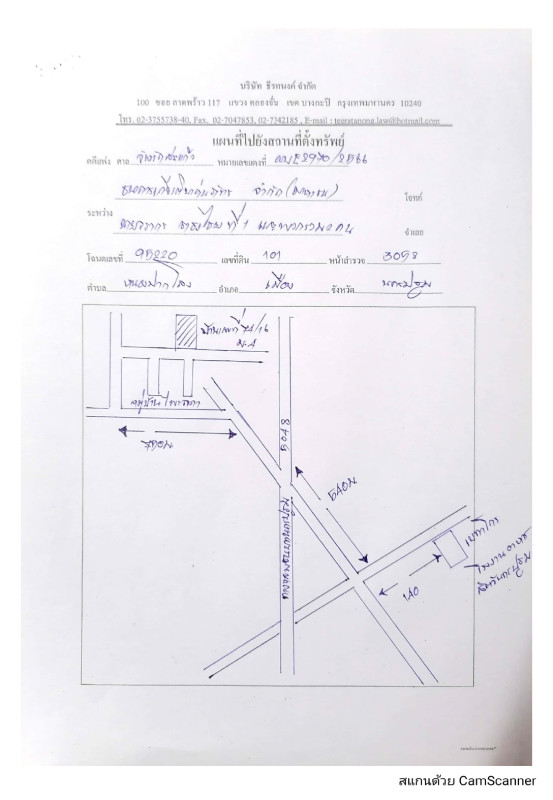 บริษัท ธีรทนงค์ จำกัด
100 ซอย ลาดพร้าว 117 แขวง คลองจั่น เขต บางกะปิ กรุงเทพมหานคร 10240
โทร. 02-3755738-40, Fax. 02-7047853, 02-7342185 , E-mail : tearatanong.law@hotmail.com
แผนที่ไปยังสถานที่ตั้งทรัพย์
คดีแพ่ง ศาล หมายเลขแดงที่ ผบE2970/2566
ธนาคารเกียรตินาคินภัทร จำกัด (มหาชน) โจทก์
ระหว่าง
ที่ 1 กับพวกรวม 2 คน จำเลย
โฉนดเลขที่ 95220 เลขที่ดิน 101 หน้าสำรวจ 3058
ตำบล หนองปากโลง อำเภอ เมือง จังหวัด นครปฐม
บ้านเลขที่ 74/16
ม.4
หมู่บ้าน
5048
540ม
ถนน
140
โรงงานอาหาร
สแกนด้วย CamScanner